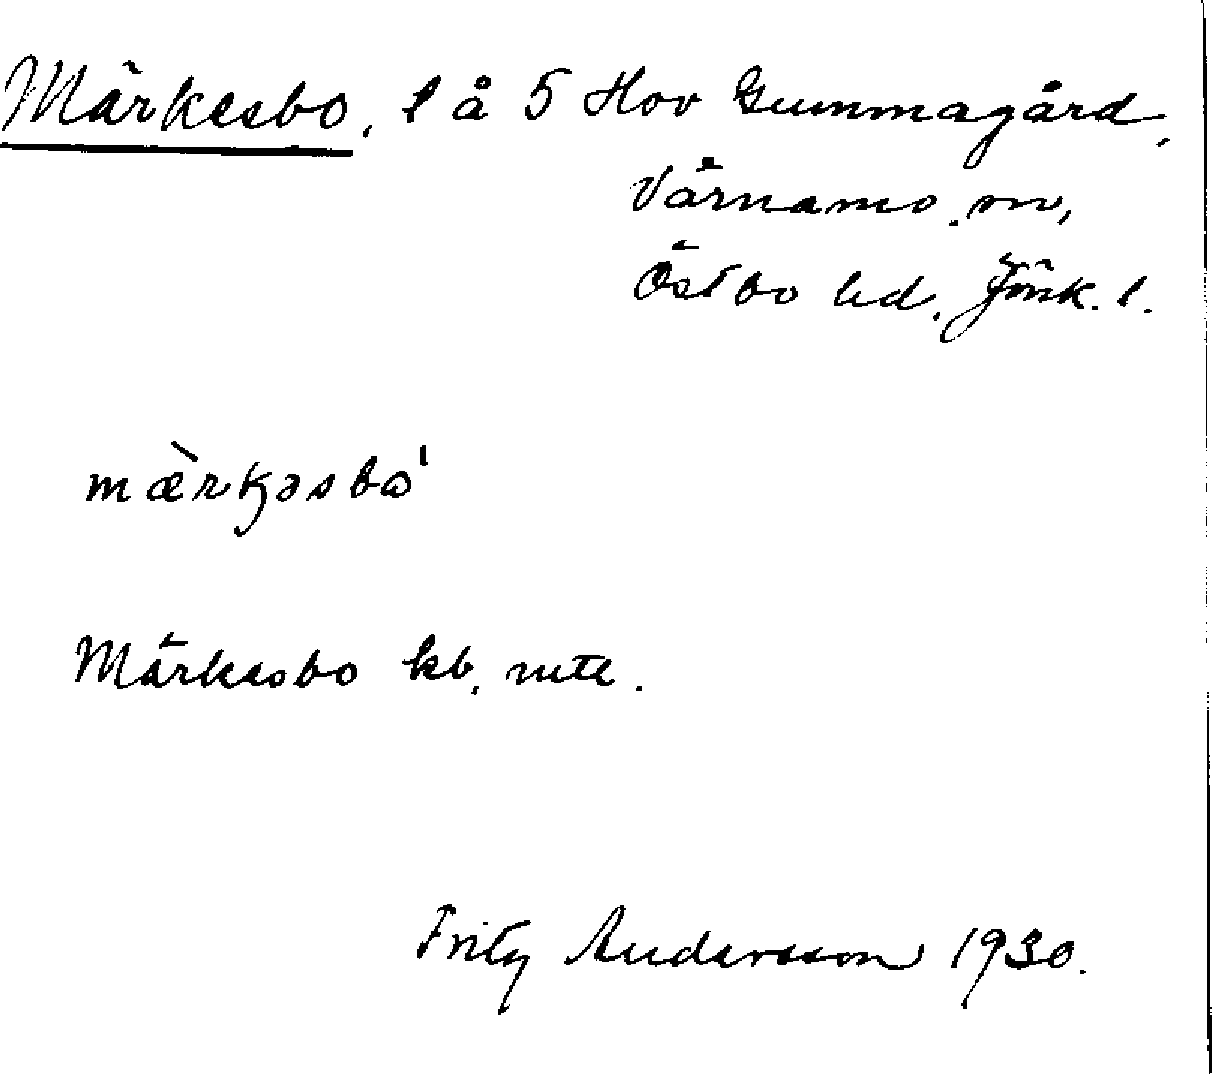 Märkesbo, l å 5 Hov Gummagård,
Värnamo sn,
Östbo hd, Jönk. l.
mæ̀rkəsbω'
Märkesbo kb, mtl.
Fritz Andersson 1930.